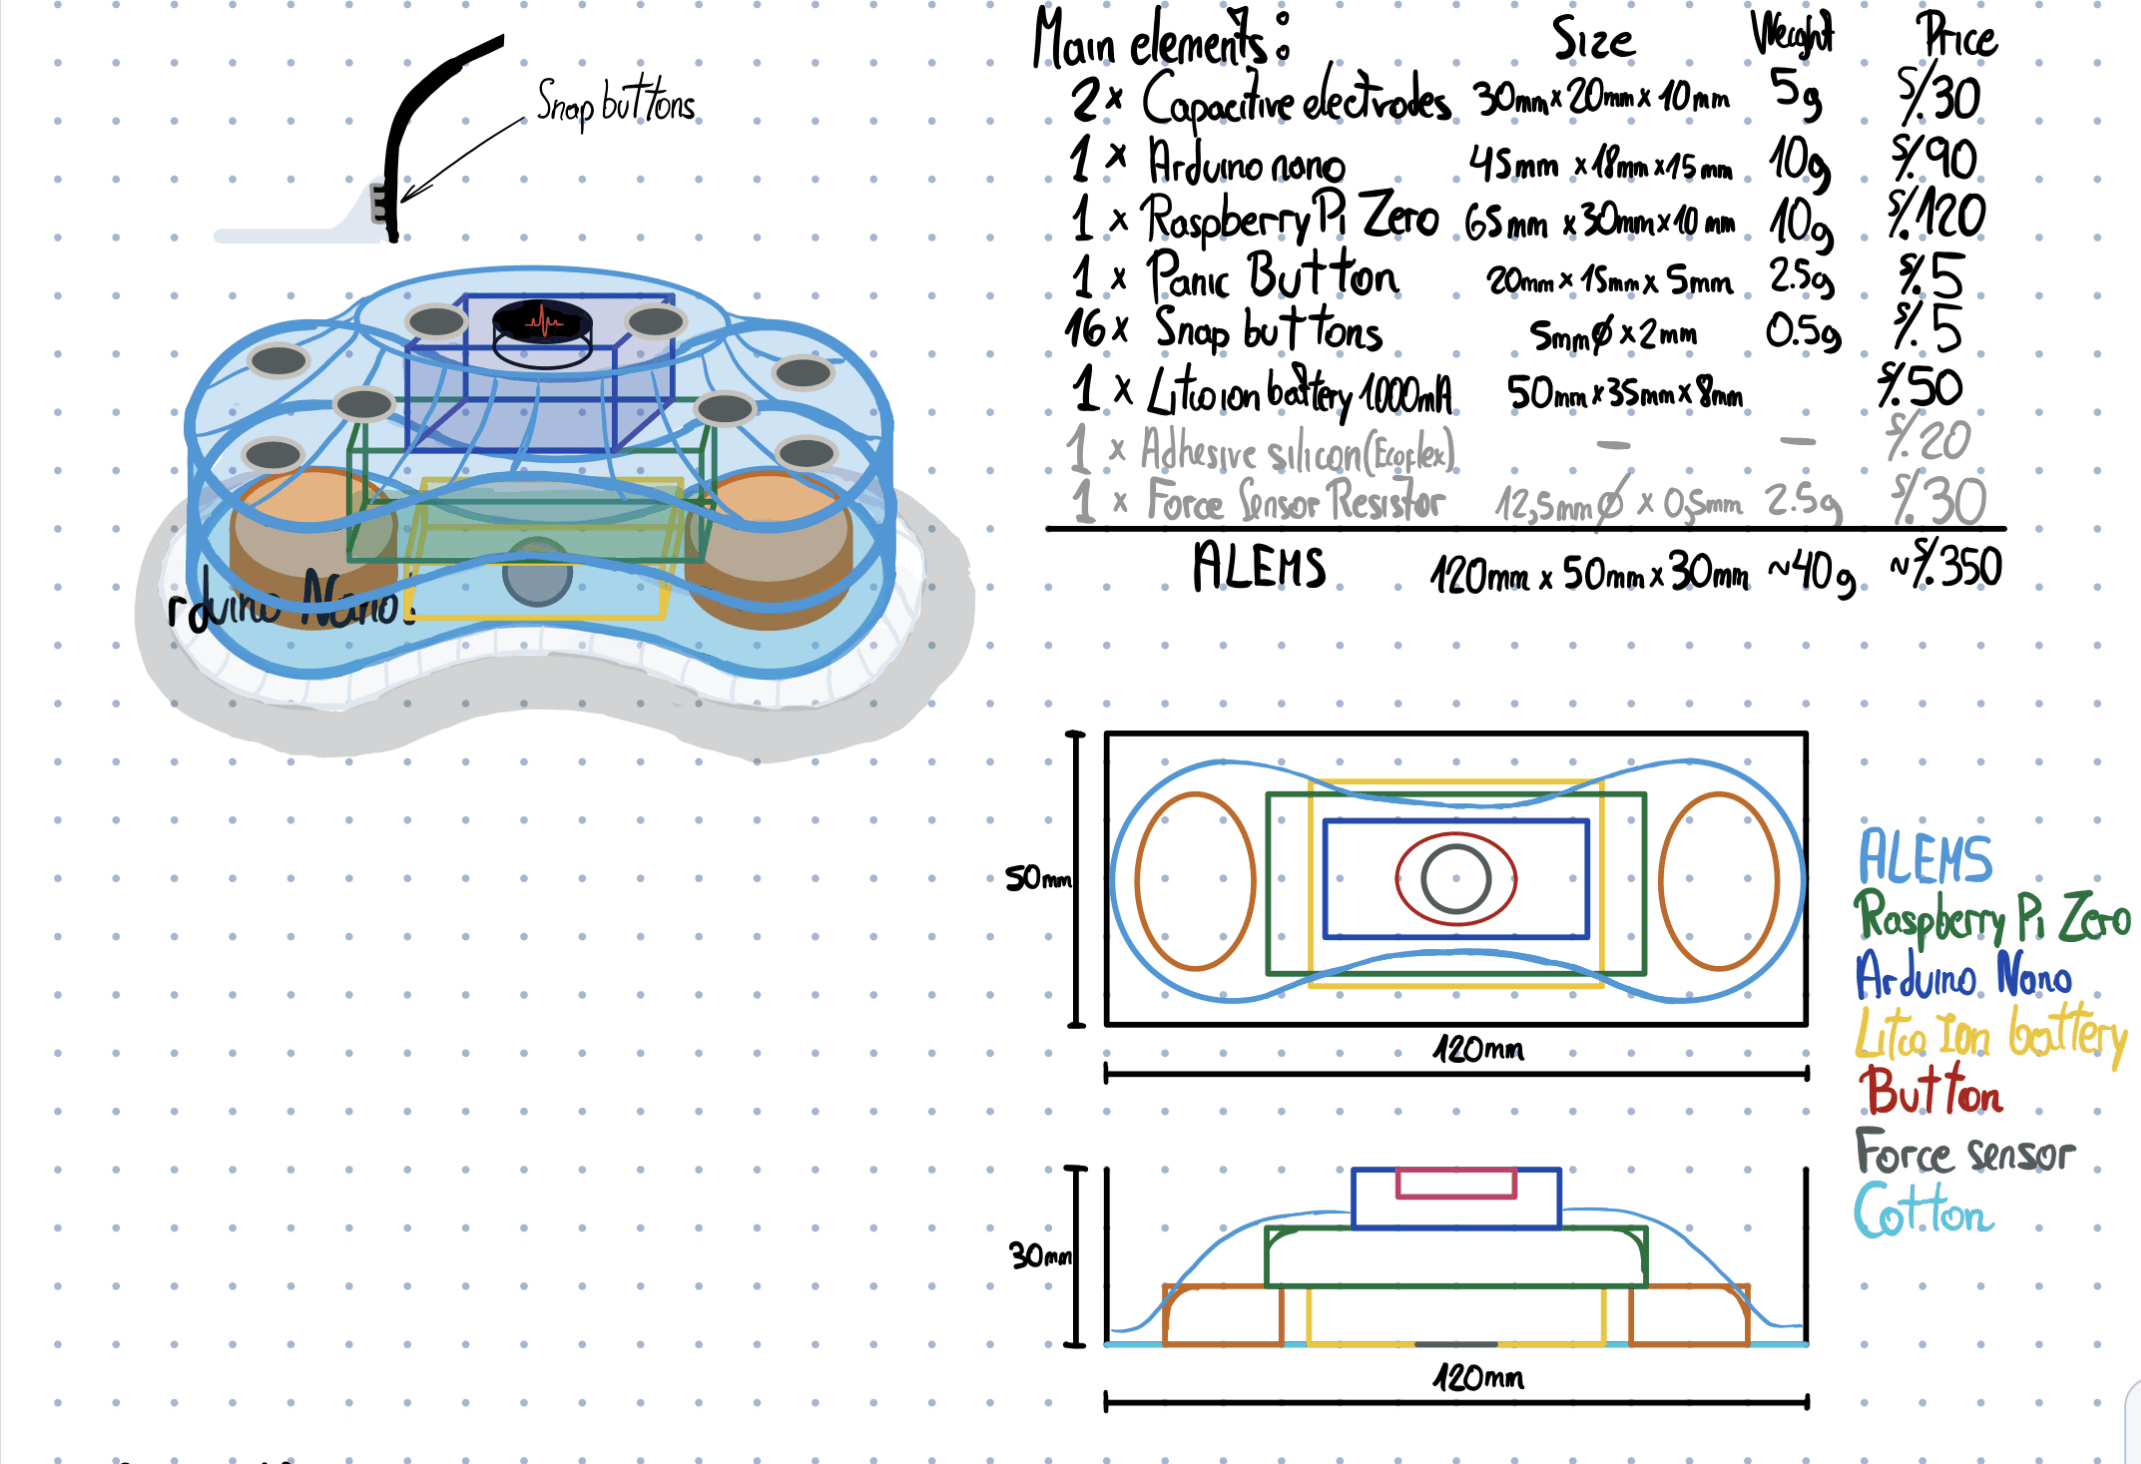 Snap buttons
Main elements: Size Weight Price
2x Capacitive electrodes 30mm x 20mm x 10mm 5g S/.30
1 x Arduino nano 45mm x 18mm x 15mm 10g S/.90
1 x Raspberry Pi Zero 65mm x 30mm x 10mm 10g S/.120
1 x Panic Button 20mm x 15mm x 5mm 2.5g S/.5
16x Snap buttons 5mmØ x 2mm 0.5g S/.5
1 x Litio ion battery 1000mA 50mm x 35mm x 8mm S/.50
1 x Adhesive silicon (Ecoflex) — — S/.20
1 x Force Sensor Resistor 12,5mmØ x 0,5mm 2.5g S/.30
ALEMS 120mm x 50mm x 30mm ~40g ~S/.350
rduino Nano:
50mm
120mm
ALEMS
Raspberry Pi Zero
Arduino Nano
Litio Ion battery
Button
Force sensor
Cotton
30mm
120mm